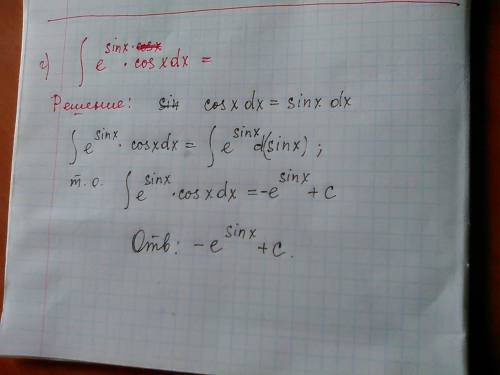 г) ∫ e^sinx · cosxdx =
Решение: cosxdx = sinxdx
∫ e^sinx · cosxdx = ∫ e^sinx d(sinx);
т.о. ∫ e^sinx · cosxdx = -e^sinx + c
Отв: -e^sinx + c.